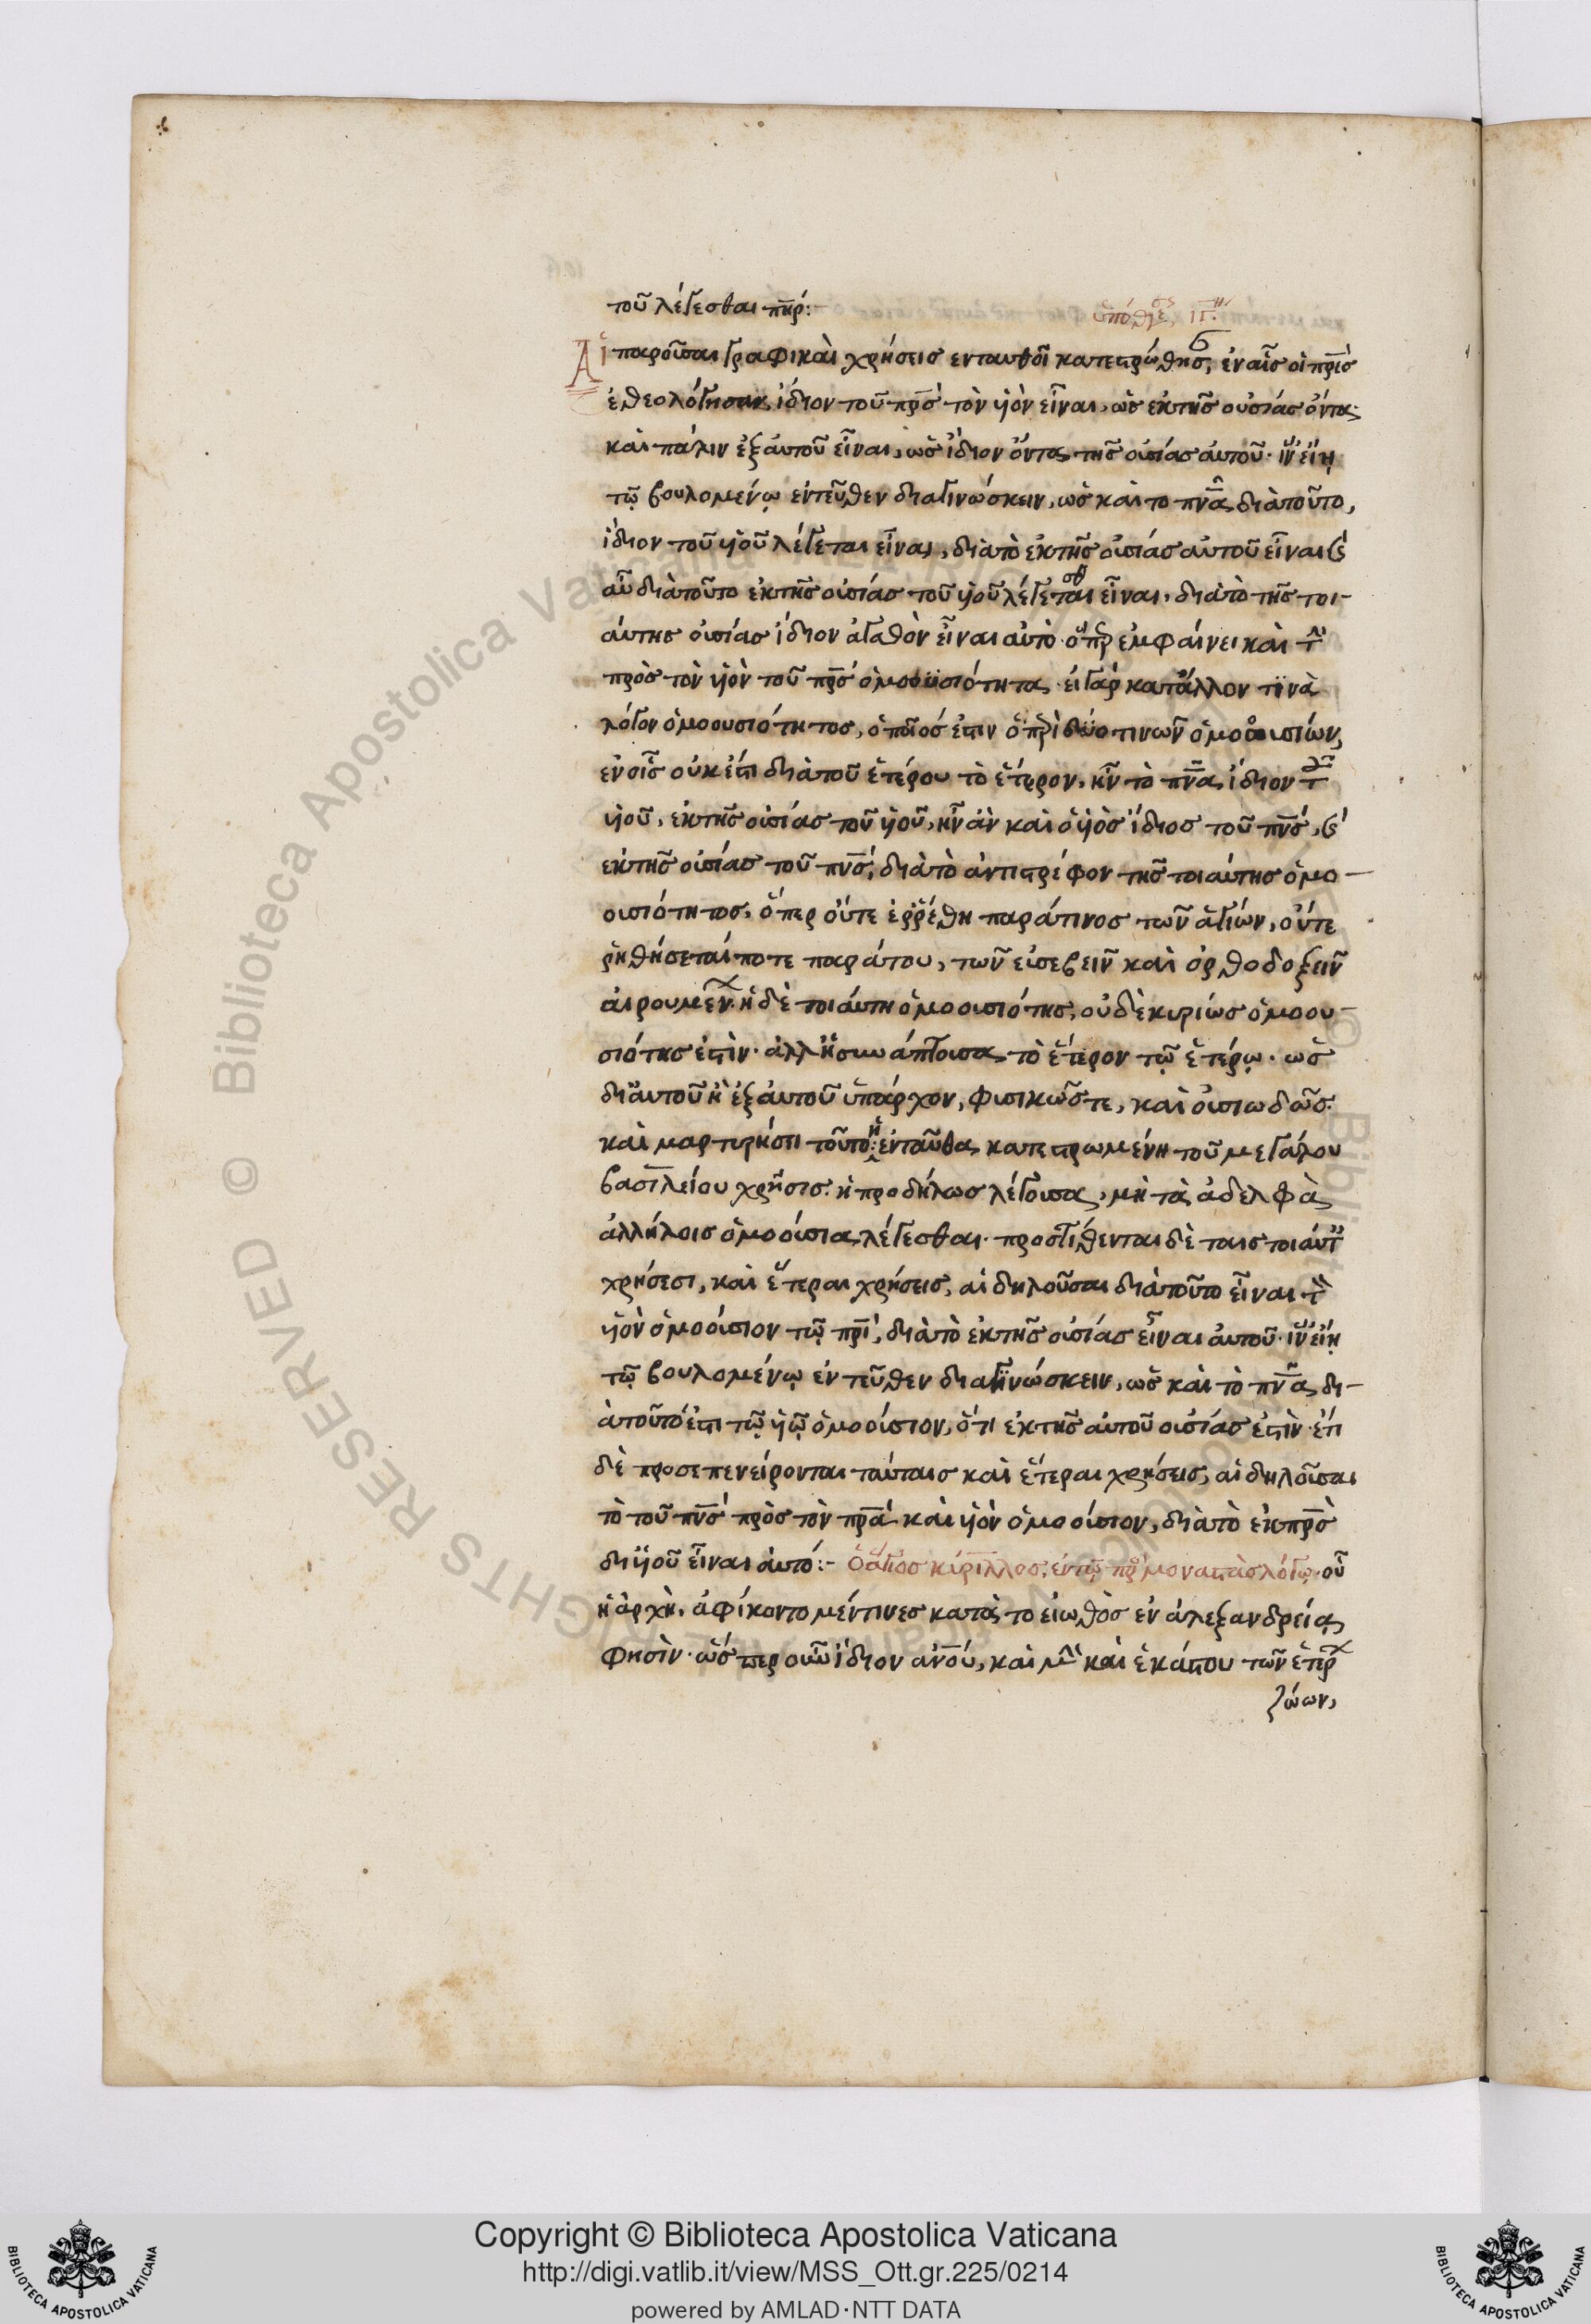 τοῦ λέγεσθαι πη̄ρ:
ὑπόθεσις ΙΓη
Αἱ παροῦσαι γραφικαὶ χρήσεις ενταυθοῖ κατεστρώθησαν, ἐν αἷς οἱ πρ̄ες
ἐθεολόγησαν, ἴδιον τοῦ πρ̄ς τὸν υἱὸν εἶναι, ὡς εκ τῆς ουσίας ὄντα·
καὶ πάλιν ἐξ αὐτοῦ εἶναι, ὡς ἴδιον ὄντα, τῆς οὐσίας αὐτοῦ. ἵν' εἴη
τῶ βουλομένῳ εντεῦθεν διαγινώσκειν, ὡς καὶ το πνᾱ, διὰ τοῦτο,
ἴδιον τοῦ υἱοῦ λέγεται εἶναι, διὰ τὸ ἐκ τῆς οὐσίας αὐτοῦ εἶναι. καὶ
αὖ διὰ τοῦτο ἐκ τῆς οὐσίας τοῦ υἱοῦ λέγεται εἶναι, διὰ τὸ τῆς τοι-
αύτης οὐσίας ἴδιον ἀγαθὸν εἶναι αὐτὸ. ὅπερ εμφαίνει καὶ τὴν
πρὸς τὸν υἱὸν τοῦ πρ̄ς ὁμοουσιότητα. εἰ γὰρ κατ' ἄλλον τινὰ
λόγον ὁμοουσιότητος, ὁποῖός ἐστιν ὁ περὶ δύο τινῶν ὁμοουσίων,
ἐν οἷς οὐκ ἔστι διὰ τοῦ ἑτέρου τὸ ἕτερον, ἦν τὸ πνᾱ, ἴδιον τοῦ
υἱοῦ, ἐκ τῆς οὐσίας τοῦ υἱοῦ, ἦν ἀν καὶ ὁ υἱὸς ἴδιος τοῦ πνς̄, καὶ
εκ τῆς οὐσίας τοῦ πνς̄, διὰ τὸ ἀντιστρέφον τῆς τοιαύτης ὁμο-
ουσιότητος. ὅπερ οὔτε ἐρρέθη παρά τινος τῶν ἁγίων, οὔτε
ῥηθήσεταί ποτε παρά του, τῶν εὐσεβεῖν καὶ ὀρθοδοξεῖν
αἱρουμένων. ἡ δὲ τοιάυτη ὁμοουσιότης, οὐδὲ κυρίως ὁμοου-
σιότης ἐστὶν. ἀλλ' ἡ συνάπτουσα, τὸ ἕτερον τῶ ἑτέρῳ. ὡς
δι' αὐτοῦ ἢ ἐξ αὐτοῦ ὑπάρχον, φυσικῶς τε, καὶ οὐσιωδῶς.
καὶ μαρτυρήσει τοῦτο ἡ ἐνταῦθα κατεστρωμένη τοῦ μεγάλου
βασιλείου χρῆσις. ἡ προδήλως λέγουσα, μὴ τὰ ἀδελφὰ
ἀλλήλοις ὁμοούσια λέγεσθαι. προστίθενται δὲ ταις τοιάυταις
χρήσεσι, καὶ ἕτεραι χρήσεις, αἱ δηλοῦσαι διὰ τοῦτο εἶναι τὸν
υἱὸν ὁμοούσιον τῶ πρ̄ι, διὰ τὸ ἐκ τῆς οὐσίας εἶναι ἀυτοῦ. ἵν' εἴη
τῶ βουλομένῳ ἐντεῦθεν διαγινώσκειν, ὡς καὶ τὸ πνᾱ, δι-
ὰ τοῦτό ἐστι τῶ υἱῶ ὁμοούσιον, ὅτι ἐκ τῆς αὐτοῦ οὐσίας ἐστὶν. ἔτι
δὲ προσεπενείρονται ταύταις καὶ ἕτεραι χρήσεις, αἱ δηλοῦσαι
τὸ τοῦ πνς̄ πρὸς τὸν πρ̄α καὶ υἱὸν ὁμοούσιον, διὰ τὸ ἐκ πρ̄ς
δι' υἱοῦ εἶναι ἀυτό:- Ὁ ἅγιος κύριλλος, ἐν τῶ πρὸς μοναστὰς λόγω. οὗ
ἡ ἀρχὴ, ἀφίκοντο μέν τινες κατὰ το εἰωθὸς ἐν ἀλεξανδρεία,
φησὶν. ὥσπερ οὖν ἴδιον ἀνο̄υ, καὶ μὴν καὶ ἑκάστου τῶν ἑτέρων
ζώων,
Copyright © Biblioteca Apostolica Vaticana
http://digi.vatlib.it/view/MSS_Ott.gr.225/0214
powered by AMLAD·NTT DATA